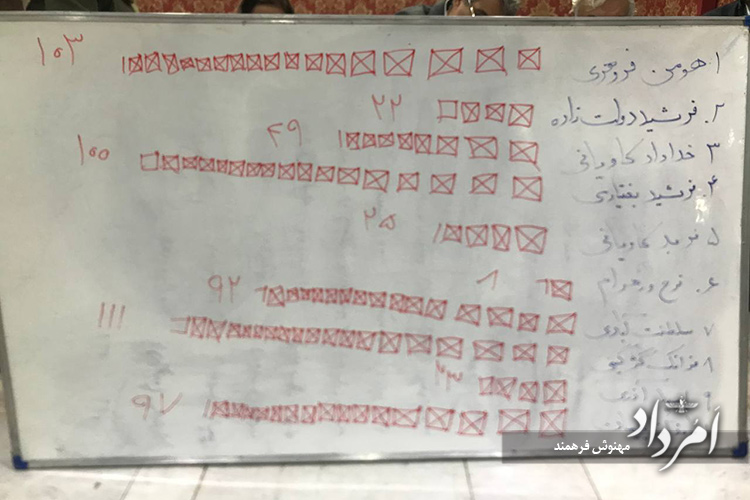 ۱. هومن فروهری ۱۰۳
۲. فرشید دولت زاده ۲۲
۳ خداداد کاویانی ۴۹
۴. فرشید بختیاری ۱۰۰
۵ کاویانی ۲۵
۶. فرخ ورهرام ۸
۷ سلطنت ۹۲
۸ فرانک ۱۱۱
۹ ۲۳
۹۷
اَمُرداد
مهنوش فرهمند